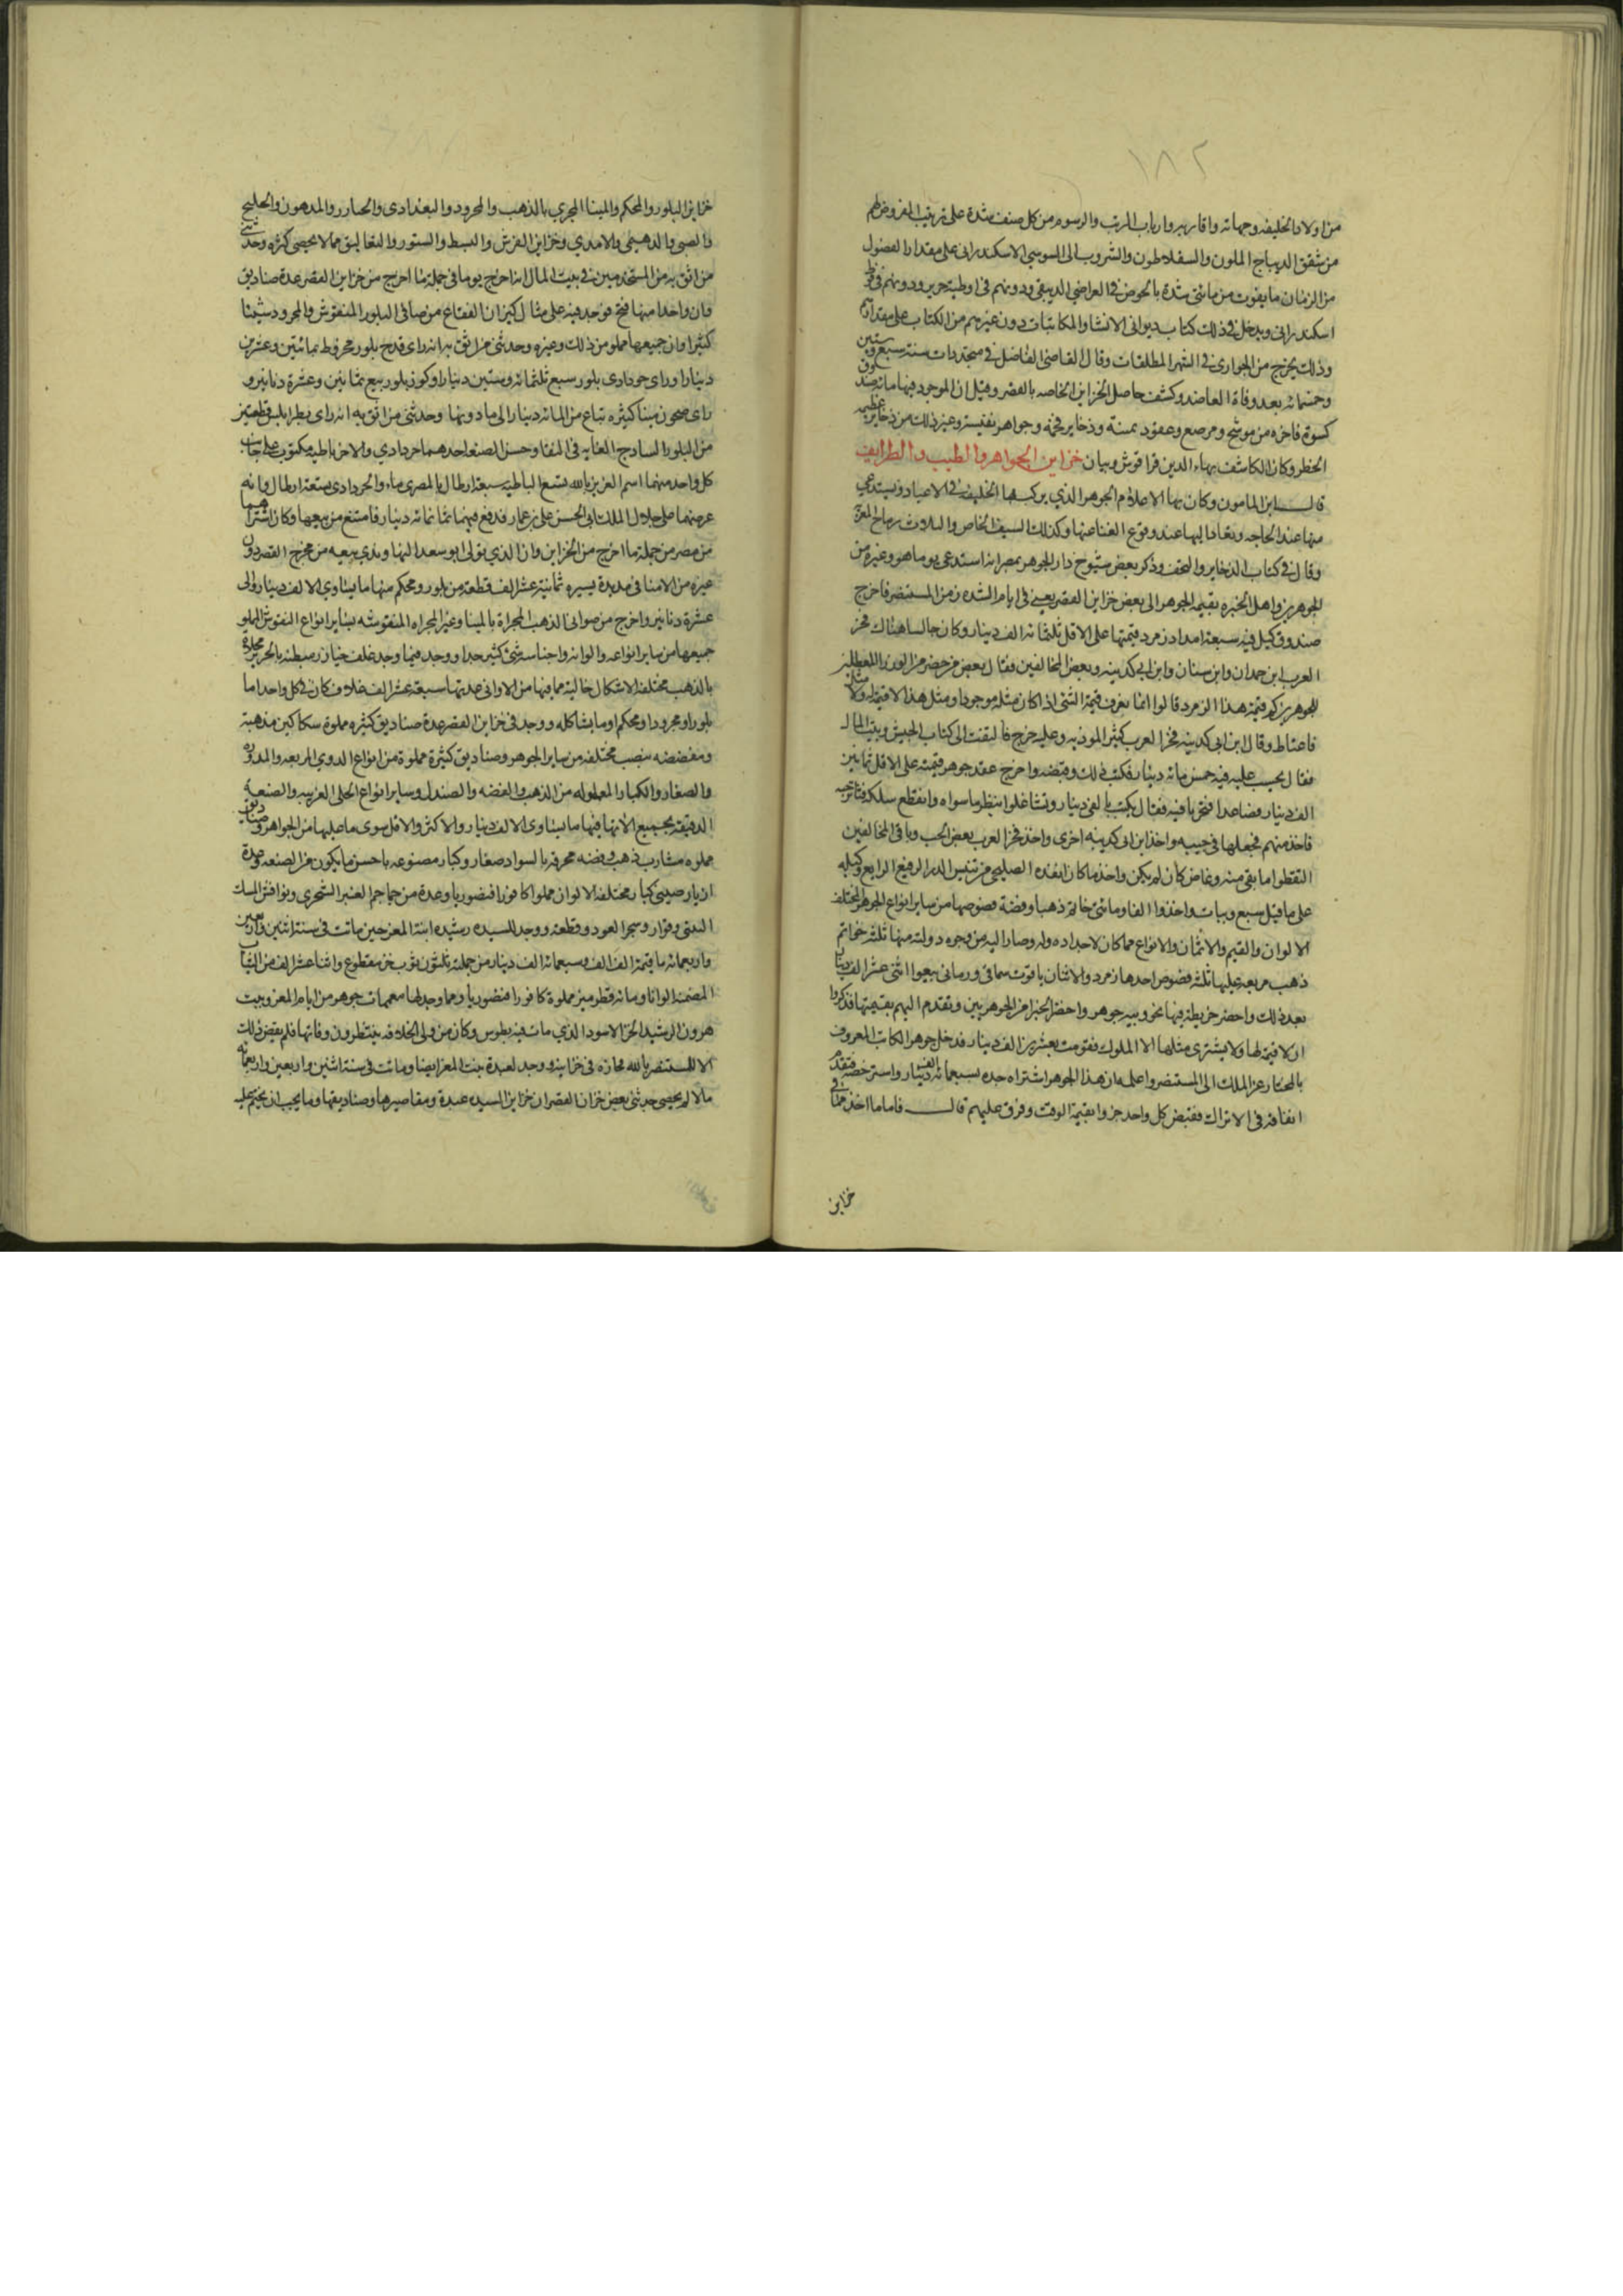 ١٨٢
من اولاد الخليفه وجهاته واقاربه وارباب الرتب والرسوم من كل صنف شدة على ترتيب المفروض لهم
من شقق الديباج الملون والسقلاطون والشروب الى السوسي الاسكندراني على مقدار الفصول
من الزمان ما يقرب من مائتي شدة فالخواص في العراضي الدبيقي ودونهم في اوطية حرير ودونهم في فوط
اسكندراني ويدخل في ذلك كتاب ديواني الانشا والمكاتبات دون غيرهم من الكتاب على مقدارهم
وذلك يخرج من الجواري في الشهر المطلقات وقال القاضي الفاضل في متجددات سنة سبع وستين
وخمسمائه بعد وفاة العاضد وكشف حاصل الخزاين الخاصه بالقصر وقيل ان الموجود فيها مائه صندوق
كسوة فاخره من موشح ومرصع وعقود ثمينة وذخاير فخمه وجواهر نفيسه وغير ذلك من ذخاير عظيمه
الخطر وكان الكاشف بهاء الدين قراقوش وبيان خزاين الجواهر والطيب والطرايف
قال ابن المامون وكان بها الاعلام الجوهر الذي يركب بها الخليفه في الاعياد ويستدعي
منها عند الحاجه ويعاد اليها عند وقوع الغنا عنها وكذلك السيف الخاص والثلاث رماح المعزية
وقال في كتاب الذخاير والتحف وذكر بعض شيوخ دار الجوهر بمصر انه استدعي يوما هو وغيره من
الجوهريين واهل الخبره بقيمة الجوهر الى بعض خزاين القصر يعني في ايام الشده زمن المستنصر فاخرج
صندوق كيل فيه سبعة امداد زمرد قيمتها على الاقل ثلثمائه الف دينار وكان جالسا هناك فخر
العرب ابن حمدان وابن سنان وابن ابي كدينه وبعض المخالفين فقال بعض من حضر من الوزرا المعطلين
للجوهريين كم قيمة هذا الزمرد قالوا انما نعرف قيمة الشي اذا كان مثله موجودا ومثل هذا لا قيمة له ولا مثل
فاغتاظ وقال ابن ابي كدينه فخر العرب كثير المونه وعليه خرج فالتفت الى كتاب الجيش وبيت المال
فقال يحسب عليه فيه خمس مائه دينار فكتب ذلك وقبضه واخرج عقد جوهر قيمته على الاقل ثمانين
الف دينار فصاعدا فتحرنا فيه فقال يكتب بالفي دينار وتشاغلوا بنظر ما سواه وانقطع سلكه فتناثر حبه
فاخذ منهم فجعلها في جيبه واخذ ابن ابي كدينه اخرى واخذ فخر العرب بعض الحب وباقي المخالفين
التقطوا ما بقي منه وغاص كان لم يكن واخذ ما كان انفذه الصليحي من نفيس الدر الرفيع الرايع وكيله
على ما قيل سبع ويبات واخذوا الفا ومائتي خاتم ذهبا وفضة فصوصها من ساير انواع الجوهر المختلف
الالوان والقيم والاثمان والانواع مما كان لاجداده وله وصار اليه من وجوه دولته منها ثلثه خواتم
ذهب مربعه عليها ثلثه فصوص احدها زمرد والاثنان ياقوت سماقي ورماني بيعوا اثني عشر الف دينار
بعد ذلك واحضر خريطة فيها نحو ويبه جوهر واحضر الخبرا من الجوهريين وتقدم اليهم بقيمتها فذكروا
ان لا قيمة لها ولا يشتري مثلها الا الملوك فقومت بعشرين الف دينار فدخل جوهر الكاتب المعروف
بالمختار عز الملك الى المستنصر واعلمه ان هذا الجوهر اشتراه جده بسبعمائه الف دينار واسترخصه فتقدم
انفاقه في الاتراك فقبض كل واحد جزوا بقيمة الوقت وفرق عليهم قال فاما ما اخذ مما في
خزاين
خزاين البلور والمحكم والمينا المجري بالذهب والمجرود والبغدادي والخيار والمدهون والخليج
والصيني والدهيمي والامدي وخزاين الفرش والبسط والستور والتعاليق مما لا يحصى كثره وحدثني
من اثق به من المستخدمين في بيت المال انه اخرج يوما في جملة ما اخرج من خزاين القصر عدة صناديق
وان واحدا منها فتح فوجد فيه على مثال كيزان الفقاع من صافي البلور المنقوش والمجرود شيئا
كثيرا وان جميعها مملو من ذلك وغيره وحدثني من اثق به انه راى قدح بلور مخروط بمائتين وعشرين
دينارا وراى خردادي بلور بيع بثلثمائه وستين دينارا وكوز بلور بيع بمائتين وعشرة دنانير و
راى صحون مينا كثيره تباع من المائه دينار الى ما دونها وحدثني من اثق به انه راى بطرابلس قطعتين
من البلور الساذج الغايه في النقا وحسن الصنعه احدهما خردادي والاخر باطيه مكتوب على جانب
كل واحد منهما اسم العزيز بالله تسع الباطيه سبعة ارطال بالمصري ماء والخردادي تسعة ارطال وانه
عرضهما على جلال الملك ابي الحسن علي بن عمار فدفع فيهما ثمانمائه دينار فامتنع من بيعها وكان اشتراهما
من مصر من جملة ما اخرج من الخزاين وان الذي تولى ابو سعد النهاوندي بيعه من مخرج القصر دون
غيره من الامنا في مديدة يسيره ثمانية عشر الف قطعة من بلور ومحكم منها ما يساوي الالف دينار والى
عشرة دنانير واخرج من صواني الذهب المجراة بالمينا وغير المجراه المنقوشه بساير انواع النقوش المملو
جميعها من ساير انواعه والوانه واجناسه شي كثير جدا ووجد فيما وجد غلف خيار مبطنه بالحرير محلاة
بالذهب مختلفة الاشكال خالية مما فيها من الاواني عدتها سبعة عشر الف غلاف كان في كل واحد اما
بلورا ومجرودا ومحكم او ما يشاكله ووجد في خزاين القصر عدة صناديق كثيره مملوة سكاكين مذهبة
ومفضضه بنصب مختلفه من ساير الجوهر وصناديق كثيرة مملوة من انواع الدوي المربعه والمدوره
والصغار والكبار المعموله من الذهب والفضه والصندل وساير انواع الحلى الغريبه والصنعة
الدقيقه بجميع الاتها فيها ما يساوي الالف دينار والاكثر والاقل سوى ما عليها من الجواهر وصناديق
مملوه مشارب ذهب وفضه محرقه بالسواد صغار وكبار مصنوعه باحسن ما يكون من الصنعه وعدة
ازيار صيني كبار مختلفه الالوان مملوا كافورا قيصوريا وعدة من جماجم العنبر الشحري ونوافش المسك
التبتي وقوارير وشجر العود وقطعه ووجد للسيده رشيده ابنة المعز حين ماتت في سنة اثنين واربعين
واربعمائه ما قيمة الف الف وسبعمائه الف دينار من جملته ثلثون ثوب خز مقطوع واثنا عشر الف من الثياب
المصمتة الوانا ومائه قطرميز مملوة كافورا قيصوريا ومما وجد لها معممات جوهر من ايام المعز وبيت
هرون الرشيد الخز الاسود الذي مات فيه بطوس وكان من ولي الخلافه ينتظرون وفاتها فلم يقض ذلك
الا للمستنصر بالله فحازه في خزاينه ووجد لعبدة بنت المعز ايضا وماتت في سنة اثنين واربعين واربعمائه
مالا لم يحصى حدثني بعض خزان القصر ان خزاين السيده عبدة ومقاصيرها وصناديقها وما يجب ان يختم عليه